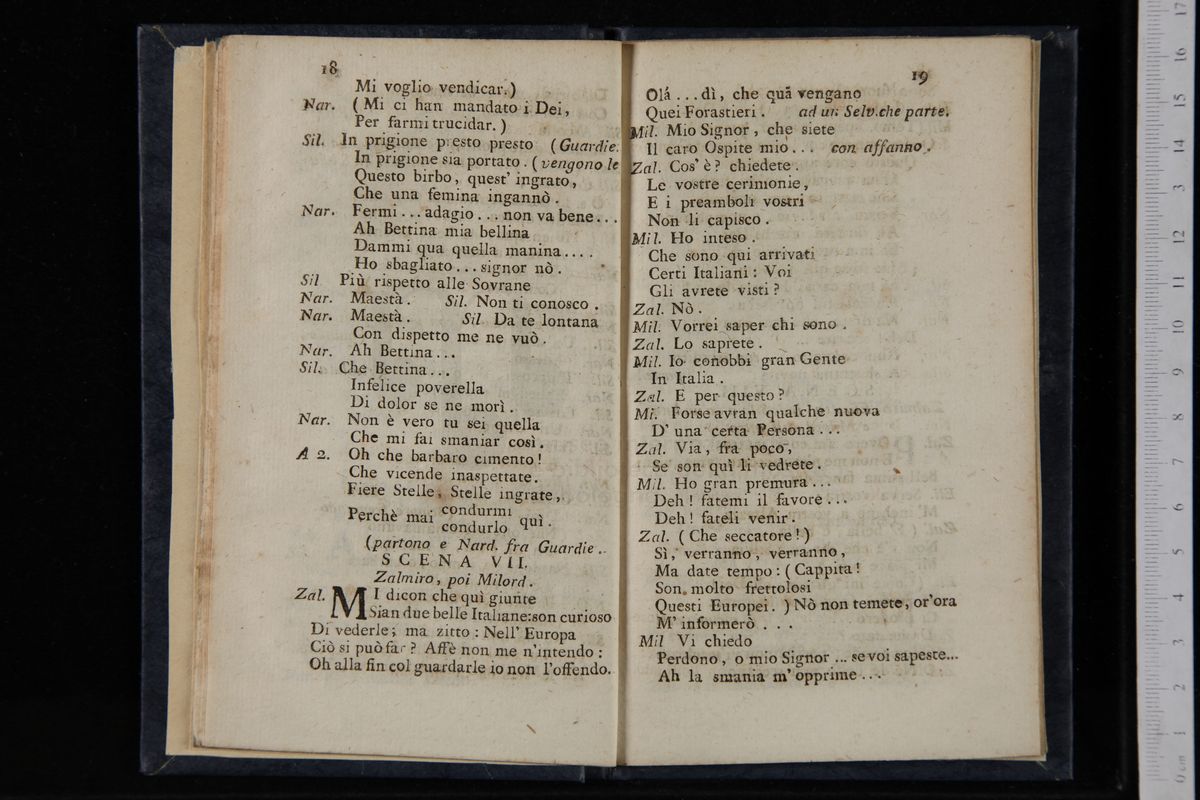 18
Mi voglio vendicar.)
Nar. ( Mi ci han mandato i Dei,
Per farmi trucidar. )
Sil. In prigione presto presto (Guardie.
In prigione sia portato. (vengono le
Questo birbo, quest' ingrato,
Che una femina ingannò.
Nar. Fermi ... adagio ... non va bene...
Ah Bettina mia bellina
Dammi qua quella manina....
Ho sbagliato... signor nò.
Sil Più rispetto alle Sovrane
Nar. Maestà. Sil. Non ti conosco.
Nar. Maestà. Sil Da te lontana
Con dispetto me ne vuò.
Nar. Ah Bettina...
Sil. Che Bettina...
Infelice poverella
Di dolor se ne morì.
Nar. Non è vero tu sei quella
Che mi fai smaniar così.
A 2. Oh che barbaro cimento!
Che vicende inaspettate.
Fiere Stelle, Stelle ingrate,
Perchè mai condurmi quì.
condurlo
(partono e Nard. fra Guardie.
SCENA VII.
Zalmiro, poi Milord.
Zal. MI dicon che quì giunte
Sian due belle Italiane:son curioso
Di vederle; ma zitto: Nell' Europa
Ciò si può far? Affè non me n'intendo:
Oh alla fin col guardarle io non l'offendo.
19
Olá ...dì, che quā vengano
Quei Forastieri. ad un Selv.che parte.
Mil. Mio Signor, che siete
Il caro Ospite mio... con affanno.
Zal. Cos' è? chiedete.
Le vostre cerimonie,
E i preamboli vostri
Non li capisco.
Mil. Ho inteso.
Che sono qui arrivati
Certi Italiani: Voi
Gli avrete visti?
Zal. Nò.
Mil. Vorrei saper chi sono.
Zal. Lo saprete.
Mil. Io conobbi gran Gente
In Italia.
Zal. E per questo?
Mi. Forse avran qualche nuova
D' una certa Persona...
Zal. Via, fra poco,
Se son quì li vedrete.
Mil. Ho gran premura...
Deh! fatemi il favore...
Deh! fateli venir.
Zal. (Che seccatore!)
Sì, verranno, verranno,
Ma date tempo: (Cappita!
Son molto frettolosi
Questi Europei. ) Nò non temete, or'ora
M' informerò ...
Mil Vi chiedo
Perdono, o mio Signor ... se voi sapeste...
Ah la smania m' opprime...
0 cm 1 2 3 4 5 6 7 8 9 10 11 12 13 14 15 16 17